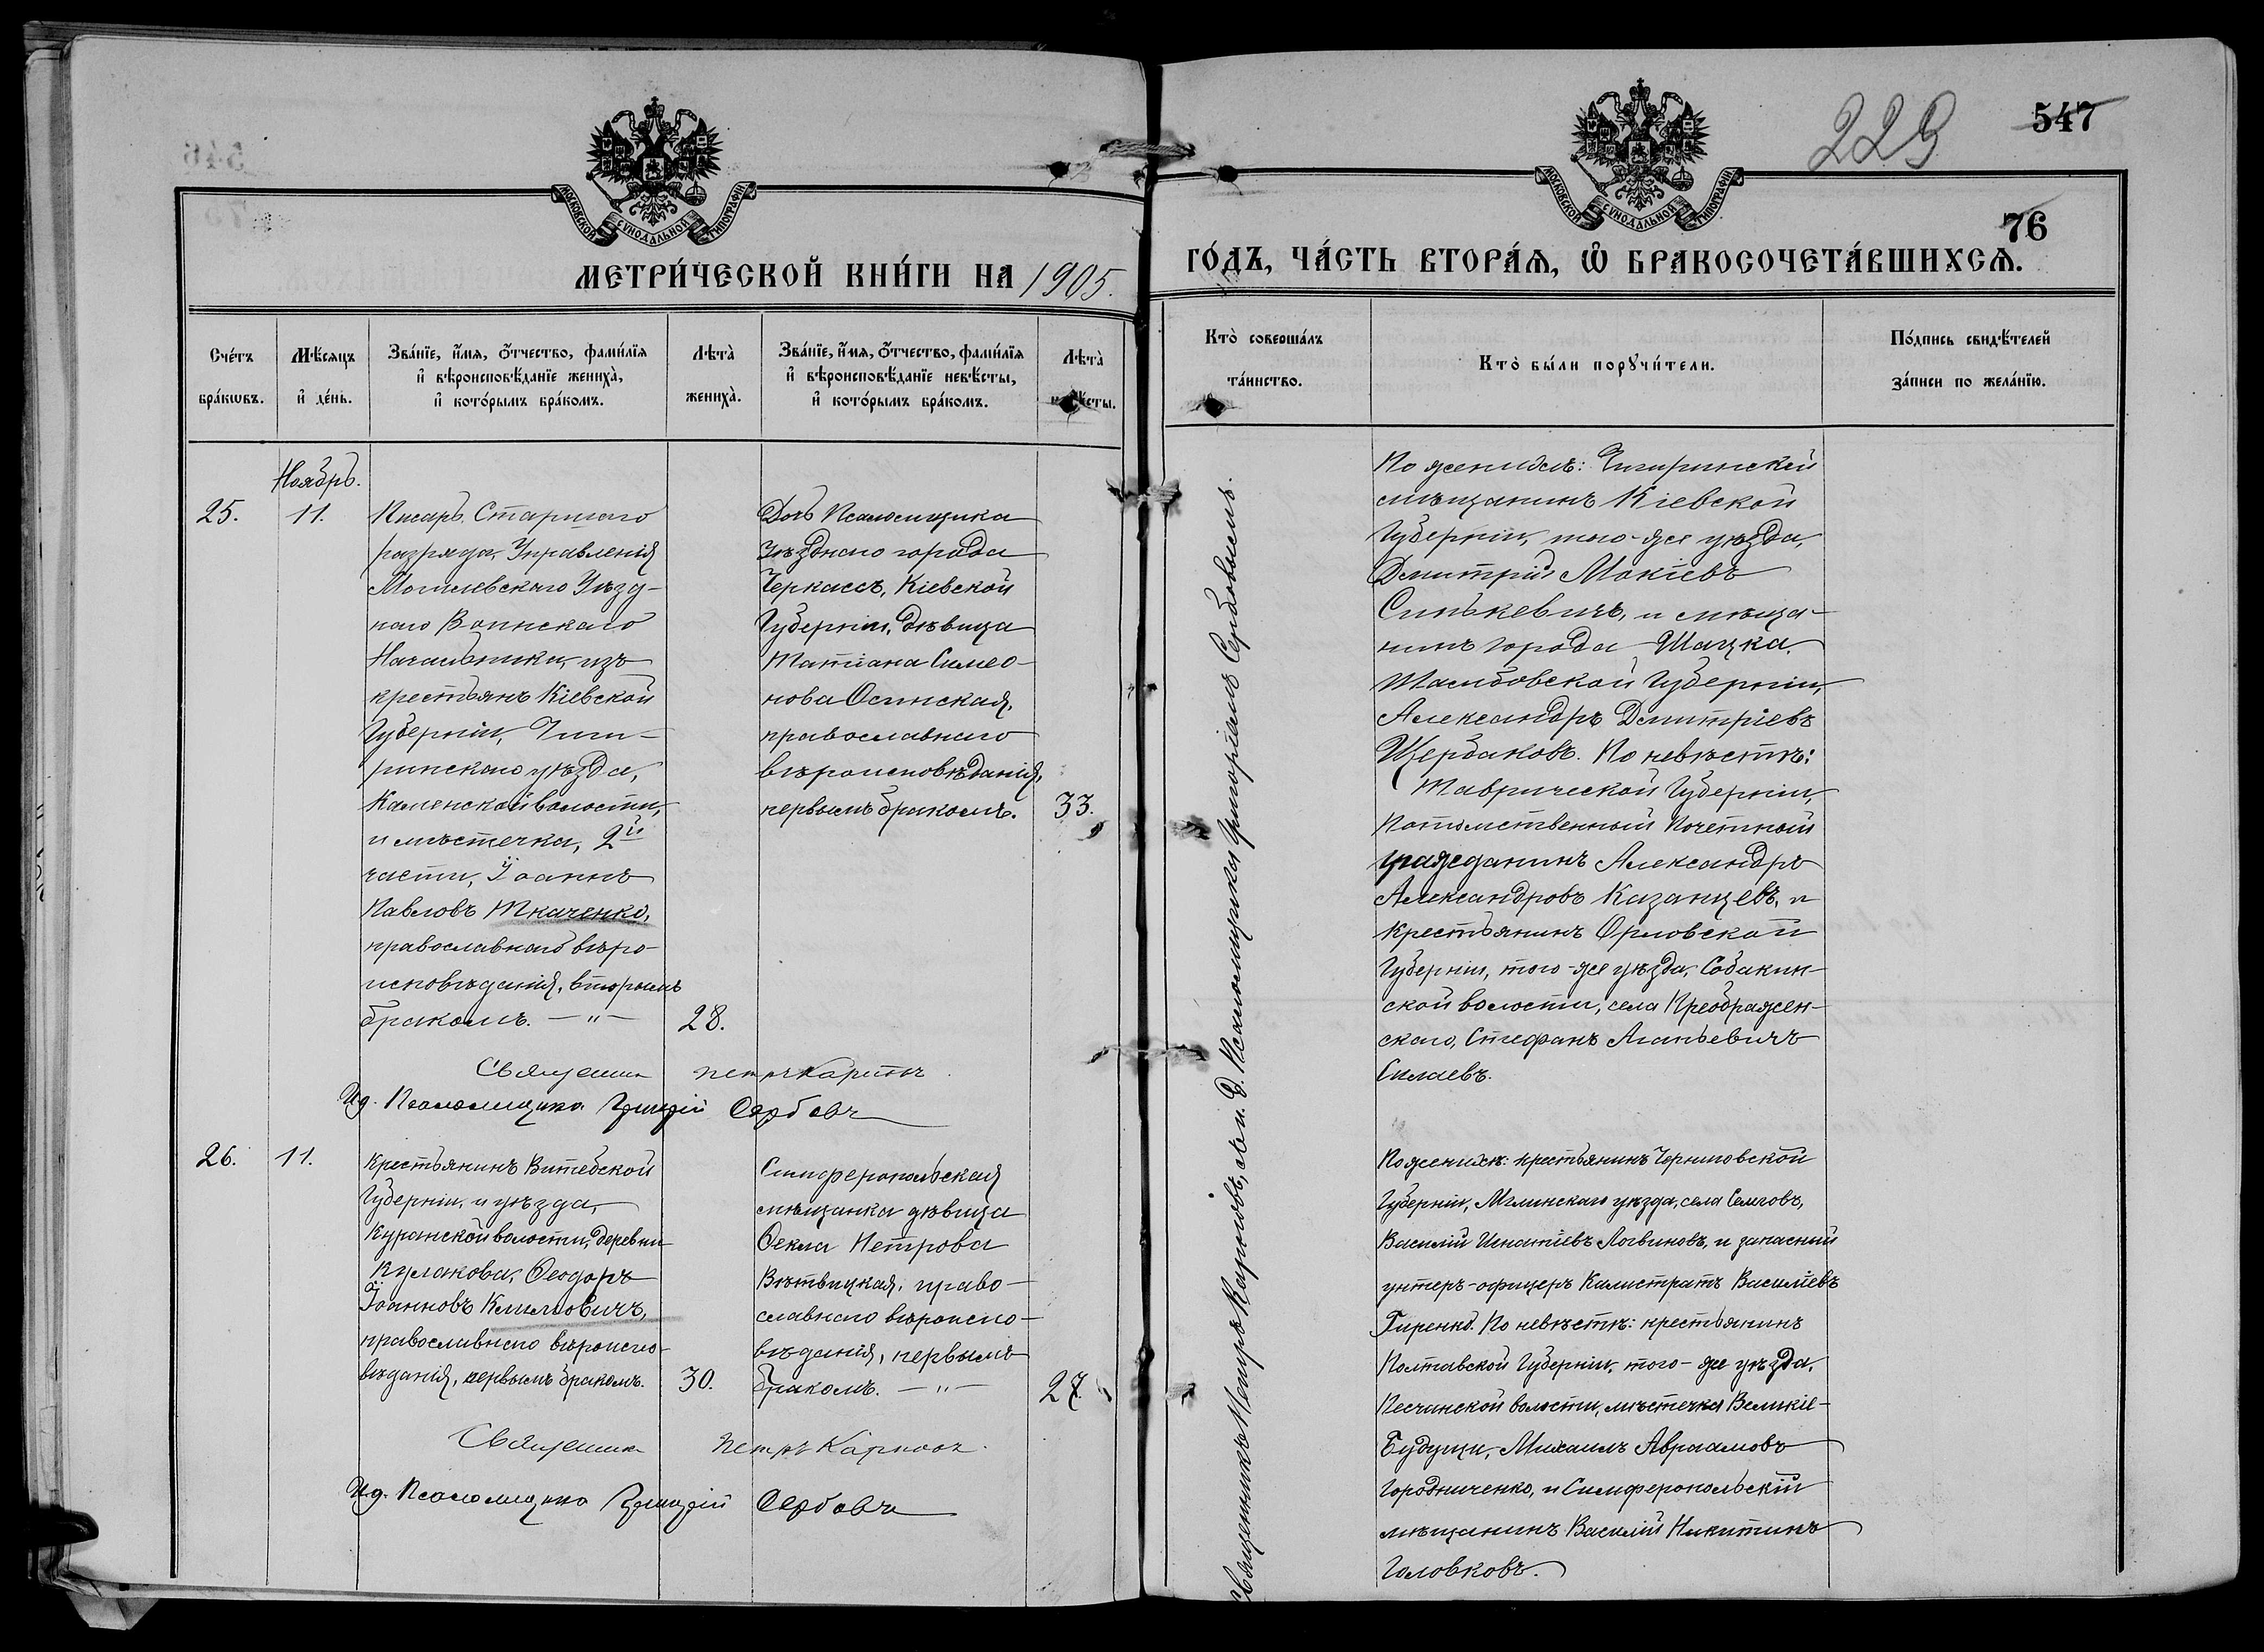 547
229
76
МОСКОВСКОЙ СѴНОДАЛЬНОЙ ТИПОГРАФІИ
МОСКОВСКОЙ СѴНОДАЛЬНОЙ ТИПОГРАФІИ
МЕТРИ́ЧЕСКОЙ КНИ́ГИ НА 1905.
ГО́ДЪ, ЧА́СТЬ ВТОРА́Ѧ, Ѡ҆ БРАКОСОЧЕТА́ВШИХСѦ.
Сче́тъ бра́кѡвъ.
Мѣ́сяцъ и҆ де́нь.
Зва́нїе, и҆́мѧ, ѻ҆́тчество, фами́лїѧ и҆ вѣроисповѣ́данїе жениха̀, и҆ кото́рымъ бра́комъ.
Лѣта̀ жениха̀.
Зва́нїе, и҆́мѧ, ѻ҆́тчество, фами́лїѧ и҆ вѣроисповѣ́данїе невѣ́сты, и҆ кото́рымъ бра́комъ.
Лѣта̀ невѣ́сты.
Кто̀ соверша́лъ та́инство.
Кто̀ бы́ли порꙋчи́тели.
По́дпись свидѣ́телей за́писи по жела́нїю.
Ноябрь.
25.
11.
Писарь Старшаго
разряда, Управленія
Могилевскаго Уѣзд-
наго Воинскаго
Начальника, изъ
крестьянъ Кіевской
Губерніи, Чиги-
ринскаго уѣзда,
Каменской волости,
и мѣстечка, 2й
части, Іоаннъ
Павловъ Ткаченко,
православнаго вѣро-
исповѣданія, вторымъ
бракомъ. — " —
28.
Дочь Псаломщика
Уѣзднаго города
Черкассъ, Кіевской
Губерніи, дѣвица
Татіана Симео-
нова Осинская,
православнаго
вѣроисповѣданія,
первымъ бракомъ.
33.
Священникъ Петръ Карповъ
И.д. Псаломщика Григорій Сербовъ
Священникъ Петръ Карповъ, съ и. д. Псаломщика Григоріемъ Сербовымъ.
По женихѣ: Чигиринскій
мѣщанинъ Кіевской
Губерніи, того-же уѣзда,
Дмитрій Мокіевъ
Синькевичъ, и мѣща-
нинъ города Шацка,
Тамбовской Губерніи,
Александръ Дмитріевъ
Щербаковъ. По невѣстѣ:
Таврической Губерніи,
Потомственный Почетный
гражданинъ Александръ
Александровъ Казанцевъ, и
крестьянинъ Орловской
Губерніи, того-же уѣзда, Собакин-
ской волости, села Преображен-
скаго, Стефанъ Агапьевичъ
Силаевъ.
26.
11.
Крестьянинъ Витебской
Губерніи, и уѣзда,
Куранской волости, деревни
Кулакова, Ѳеодоръ
Іоанновъ Климовичъ,
православнаго вѣроиспо-
вѣданія, первымъ бракомъ.
30.
Симферопольская
мѣщанка дѣвица
Ѳекла Петрова
Вѣтвицкая, право-
славнаго вѣроиспо-
вѣданія, первымъ
бракомъ. — " —
27.
Священникъ Петръ Карповъ.
И.д. Псаломщика Григорій Сербовъ
По женихѣ: крестьянинъ Черниговской
Губерніи, Мглинскаго уѣзда, села Семковъ,
Василій Игнатіевъ Логвиновъ, и запасный
унтеръ-офицеръ Калистратъ Василіевъ
Гиренко. По невѣстѣ: крестьянинъ
Полтавской Губерніи, того-же уѣзда,
Песчанской волости, мѣстечка Великіе-
Будищи, Михаилъ Авраамовъ
Городниченко, и Симферопольскій
мѣщанинъ Василій Никитинъ
Головковъ.